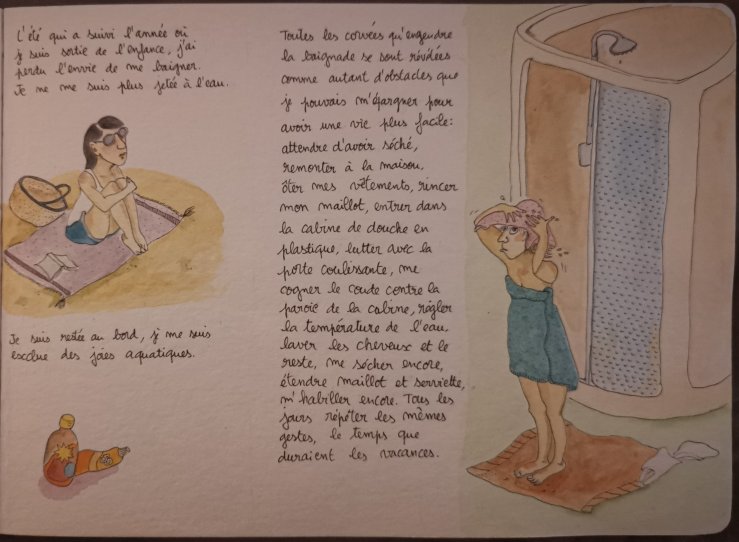 L'été qui a suivi l'année où
je suis sortie de l'enfance, j'ai
perdu l'envie de me baigner.
Je ne me suis plus jetée à l'eau.
Je suis restée au bord, je me suis
exclue des joies aquatiques.
Toutes les corvées qu'engendre
la baignade se sont révélées
comme autant d'obstacles que
je pouvais m'épargner pour
avoir une vie plus facile:
attendre d'avoir séché,
remonter à la maison,
ôter mes vêtements, rincer
mon maillot, entrer dans
la cabine de douche en
plastique, lutter avec la
porte coulissante, me
cogner le coude contre la
paroi de la cabine, régler
la température de l'eau,
laver les cheveux et le
reste, me sécher encore,
étendre maillot et serviette,
m'habiller encore. Tous les
jours répéter les mêmes
gestes, le temps que
duraient les vacances.